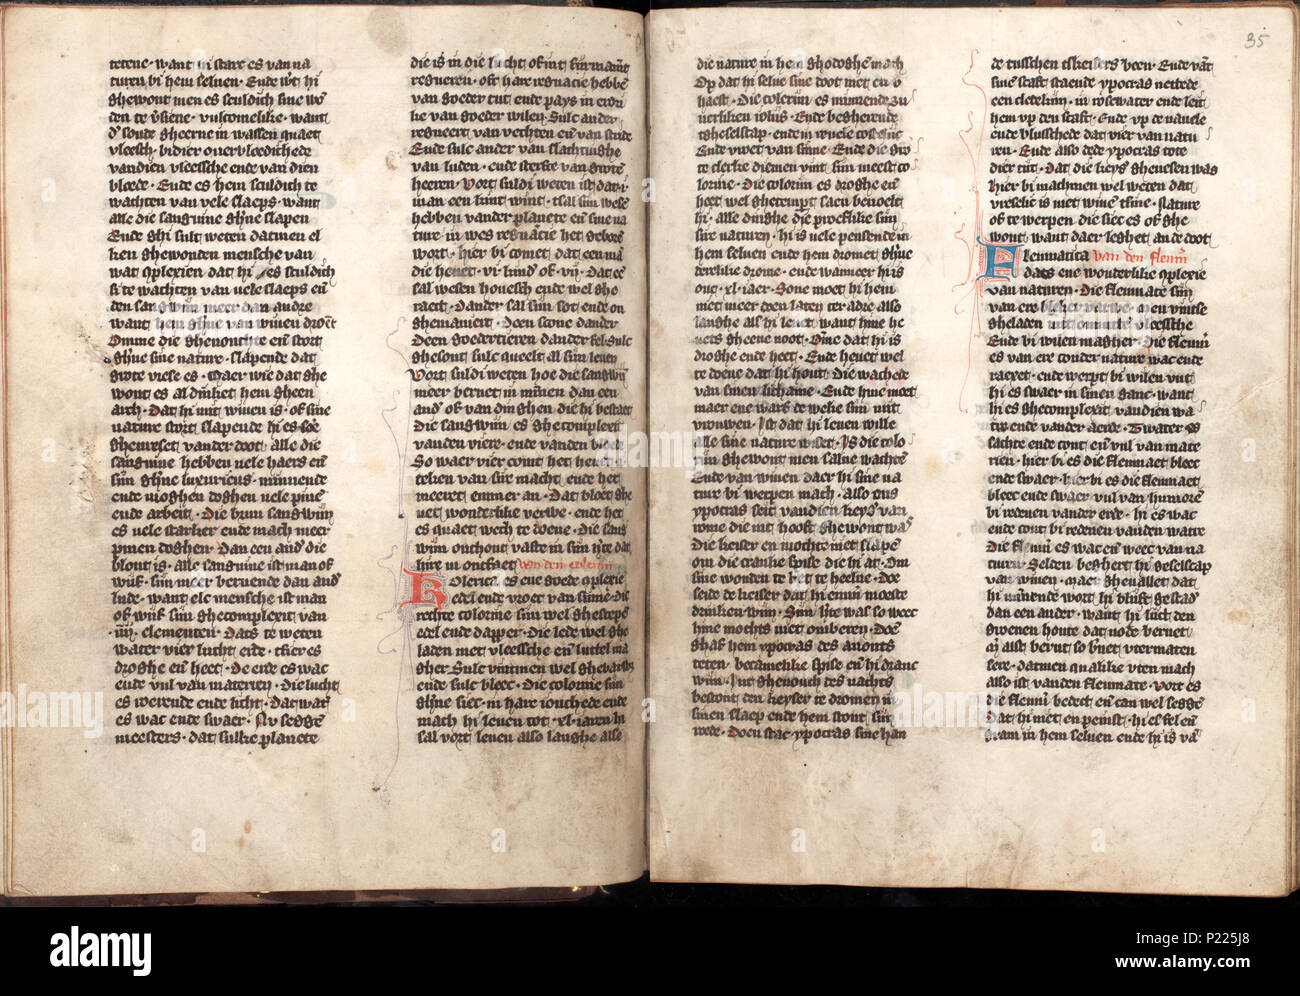 tetene · want hi starc es van na
turen bi hem seluen · Ende
ghewont men es sculdich sine
den te
sonde gheerne in wassen quaet
vleesch · bider ouervloedichede
vandien vleessche ende van dien
bloede · Ende es hem sculdich te
wachten van vele slaeps · want
alle die sanguine ghine slapen
Ende ghi sult weten datmen el
ken ghewonden mensche van
wat dat hi es sculdich
te wachten van vele slaeps
den sanguin meer dan andre
want hem ghine van winen
Omme die ghenouchte
ghine sine nature · slapende dat
grote vrese es · Maer wie dat ghe
wont es al dinket hem gheen
arch · Dat hi mit winen is · of sine
nature stort slapende hi es
ghenreset vander doot · alle die
sanguine hebben vele haers
ghine luxurieus · minnende
ende moghen doghen vele pine
ende arbeit · Die brun sanguin
es vele starker ende mach meer
pinen doghen Dan een die
blont is · alle sanguine ist man of
wijf · meer beruende dan
lude · want elc mensche ist man
of wijf ghecomplexit van
iiii elementen · Dats te weten
water vier lucht erde · tfier es
droghe heet · De erde es
ende vul van materien · Die lucht
es werende ende licht · Dat
es wac ende swaer · Nv
meesters · dat sulke planete
die is in die lucht of int firmament
regneren · oft hare regnacie hebben
van goeder tijt ende pays in
ke van goeder wilen · Sulc ander
regneert van vechten van stride
Ende sulc ander van slachtinghe
van luden · ende sterfte van grote
heeren · Vort suldi weten ist dat
man een kint wint · tsal wesen
hebben vander planete sine na
ture in wes regnacie het
wort · hier bi comet dat een man
die heuet · vi · kind of · vij · Dat een
sal wesen houesch ende wel ghe
raect · Dander sal sot ende
ghemaniert · Deen scone dander
Deen goedertieren dander fel · Sulc
ghesont sulc queelt al leuen
Vort suldi weten hoe die
meer beruet in minen dan een
of van dinghen die hi bestaet
Die sanguin es ghecomplexit
vanden viere · ende vanden bloede
So waer vier comt het heuet
teken van macht ende het
meeret emmer an · Dat bloet ghe
uet wonderlike verwe · ende het
es quaet wech te doene · Die
onthout vaste in dat
hire in ontfaet van den
Colerica es ene goede
ende vroet van sinne · die
rechte colorine wel ghescepen
edel ende dapper · Die lede wel ghe
laden met vleessche luttel ma
gher Sulc vintmen wel ghevarwet
ende sulc bleec · Die colorine
ghine siec · in hare ionchede ende
mach hi leuen tot · xl · iaren hi
sal vort leuen also langhe alse
35
die nature in hem ghedoghen mach
Op dat hi selue sine doot niet en v
haest · Die colerijn es minnende
Ende begherende
Ende vroet van sinne · Ende die gro
te clerke diemen vint meest co
lorine · Die colorijn es droghe
heet wel ghetempt saen
hi · alle dinghe die proeflike
sire naturen · hi is vele pensende
hem seluen ende hem dromet ghine
derelike drome · ende wanneer hi is
out · xl · iaer · Sone moet hi hem
niet meer doen laten ter adre also
langhe als hi leuet want hine he
uets gheene noot · Omme dat hi is
droghe ende heet · Ende heuet wel
te doene dat hi hout · Die wachede
van sinen lichame · Ende hine moet
maer ene warf de weke
vrouwen · Ist dat hi leuen wille
alle sine nature wiset · Is die colo
ghewont men salne wachten
Ende van winen daer hi sine na
ture bi werpen mach · also ons
ypocras seit vandien keyser van
rome die int hooft ghewont was
Die keiser en mochte niet slapen
om die cranke spise die hi at · Om
sine wonden te bet te heelne · Doe
seide de keiser dat hi emmer moeste
drinken wijn · Sijn siecte was so
hine mochts niet omberen · Doe
ghaf hem ypocras des auonts
teten · bequamelike spise hi dranc
wijn · Int ghenouch des nachts
bestont den keyser te dromen in
sinen slaep ende hem stont
rede · Doen stac ypocras sine han
de tusschen tskeisers been · Ende
sine staft staende ypocras nettede
een cledekijn · in rosewater ende leit
hem vp den staft · Ende vp de nauele
ende blusschede dat vier van natu
ren · Ende also dede ypocras tote
dier tijt · Dat die keyser ghenesen was
Hier bi machmen wel weten dat
vreselic is met wine tsine · Nature
of te werpen die siec es of ghe
wont want daer leghet ande doot
Fleumatica van den
dats ene wonderlike
van naturen · Die fleumate
van ere bleker varwe · Men vintse
gheladen mit vleessche
Ende bi wilen magher · Die
es van ere couder nature wac ende
raeyet · ende werpt bi wilen vut
hi es swaer in sinen ganc · want
hi es ghecomplexit vandien wa
tre ende vander aerde · Twater es
sachte ende cout vul van mate
rien · hier bi es die fleumaet bleec
ende swaer · hier bi es die fleumaet
bleec ende swaer vul van humoren
bi redenen vander erde · hi es wac
ende cout bi redenen vanden watre
Die es wac weec van na
turen Selden beghert hi geselscap
van winen · maer gheuallet dat
hi minnende wort hi blijft gestade
dan een ander · want hi sucht den
groenen houte dat node bernet
alst bernt so bernet vtermaten
sere · datmen qualike vten mach
also ist vanden fleumate · Vort es
die bedect can wel
Dat hi niet en peinst · hi es fel
gram in hem seluen ende hi is